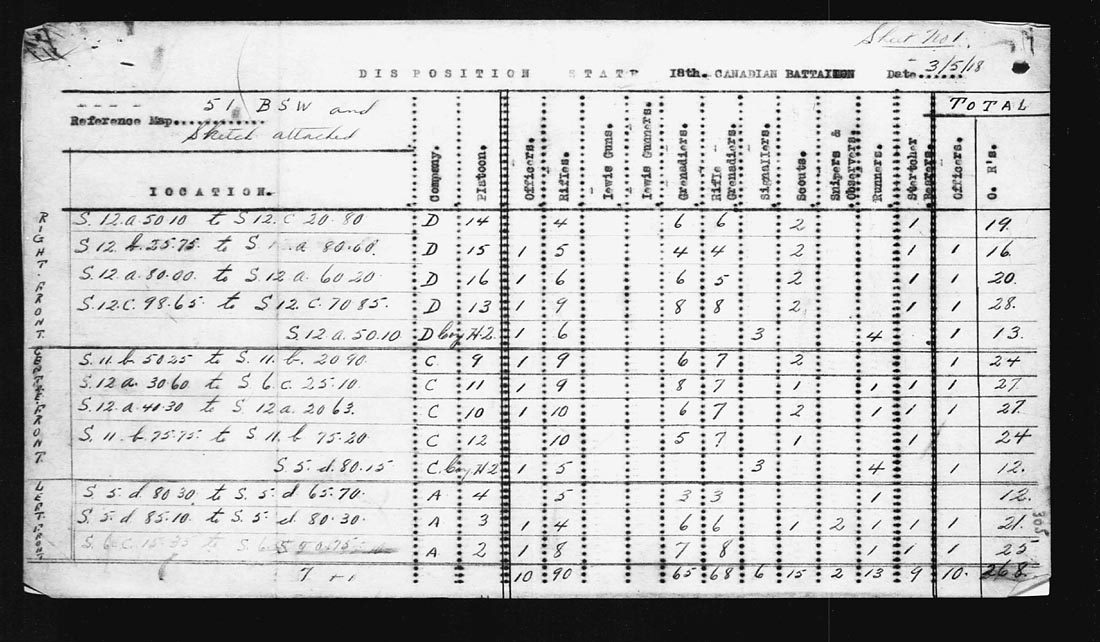 Sheet No 1.
DISPOSITION STATE 18th. CANADIAN BATTALION Date 3/5/18
Reference Map. 51 B SW and
Sketch attached
TOTAL
LOCATION. Company. Platoon. Officers. Rifles. Lewis Guns. Lewis Gunners. Grenadiers. Rifle Grenadiers. Signallers. Scouts. Snipers & Observers. Runners. Stretcher Bearers. Officers. O. R's.
RIGHT FRONT
S.12.a.50.10 to S.12.C.20.80 D 14 4 6 6 2 1 19.
S.12.b.25.75 to S. a 80.60. D 15 1 5 4 4 2 1 1 16.
S.12.a.80.00. to S.12.a.60.20 D 16 1 6 6 5 2 1 1 20.
S.12.C.98.65 to S.12.C.70.85 D 13 1 9 8 8 2 1 1 28.
S.12.a.50.10 D Coy H.Q 1 6 3 4 1 13.
CENTRE FRONT
S.11.b.50 25 to S.11.b.20 90. C 9 1 9 6 7 2 1 24
S.12.a.30 60 to S.6.C.25.10. C 11 1 9 8 7 1 1 1 1 27.
S.12.a.40.30 to S.12.a.20 63. C 10 1 10 6 7 2 1 1 1 27.
S.11.b.75.75. to S.11.b 75.20 C 12 10 5 7 1 1 24
S.5.d.80.15 C. Coy H.Q 1 5 3 4 1 12.
LEFT FRONT
S.5.d.80 30 to S.5.d 65.70. A 4 5 3 3 1 12.
S.5.d 85.10 to S.5.d.80.30. A 3 1 4 6 6 1 2 1 1 1 21.
S.6.C.15.35 to S.6 A 2 1 8 7 8 1 1 1 25
10 90 65 68 6 15 2 13 9 10. 268.
305